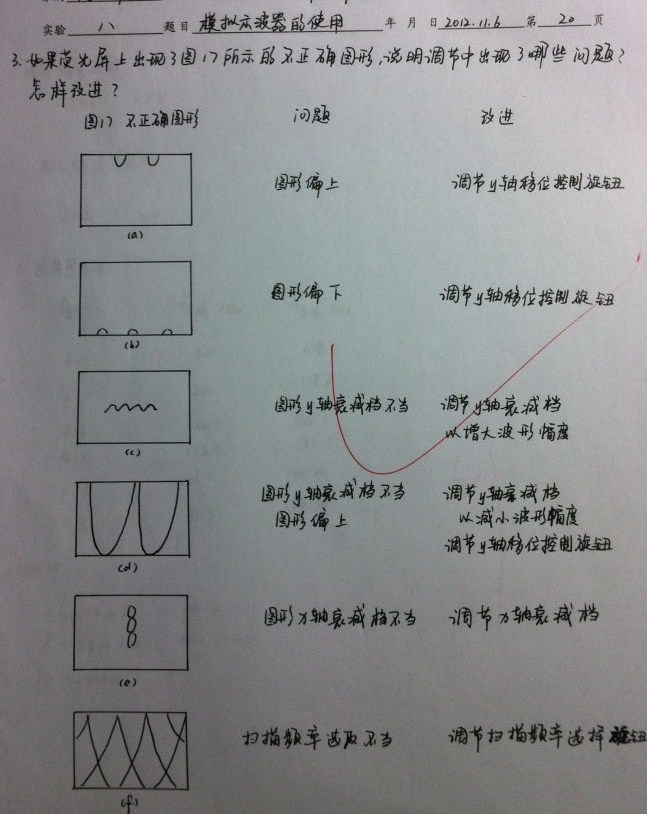 实验 八 题目 模拟示波器的使用 年 月 日 2012.11.6 第 20 页
3. 如果荧光屏上出现了图17所示的不正确图形,说明调节中出现了哪些问题?
怎样改进?
图17 不正确图形 问题 改进
图形偏上 调节y轴移位控制旋钮
(a)
图形偏下 调节y轴移位控制旋钮
(b)
图形y轴衰减档不当 调节y轴衰减档
以增大波形幅度
(c)
图形y轴衰减档不当 调节y轴衰减档
图形偏上 以减小波形幅度
调节y轴移位控制旋钮
(d)
图形x轴衰减档不当 调节x轴衰减档
(e)
扫描频率选取不当 调节扫描频率选择旋钮
(f)